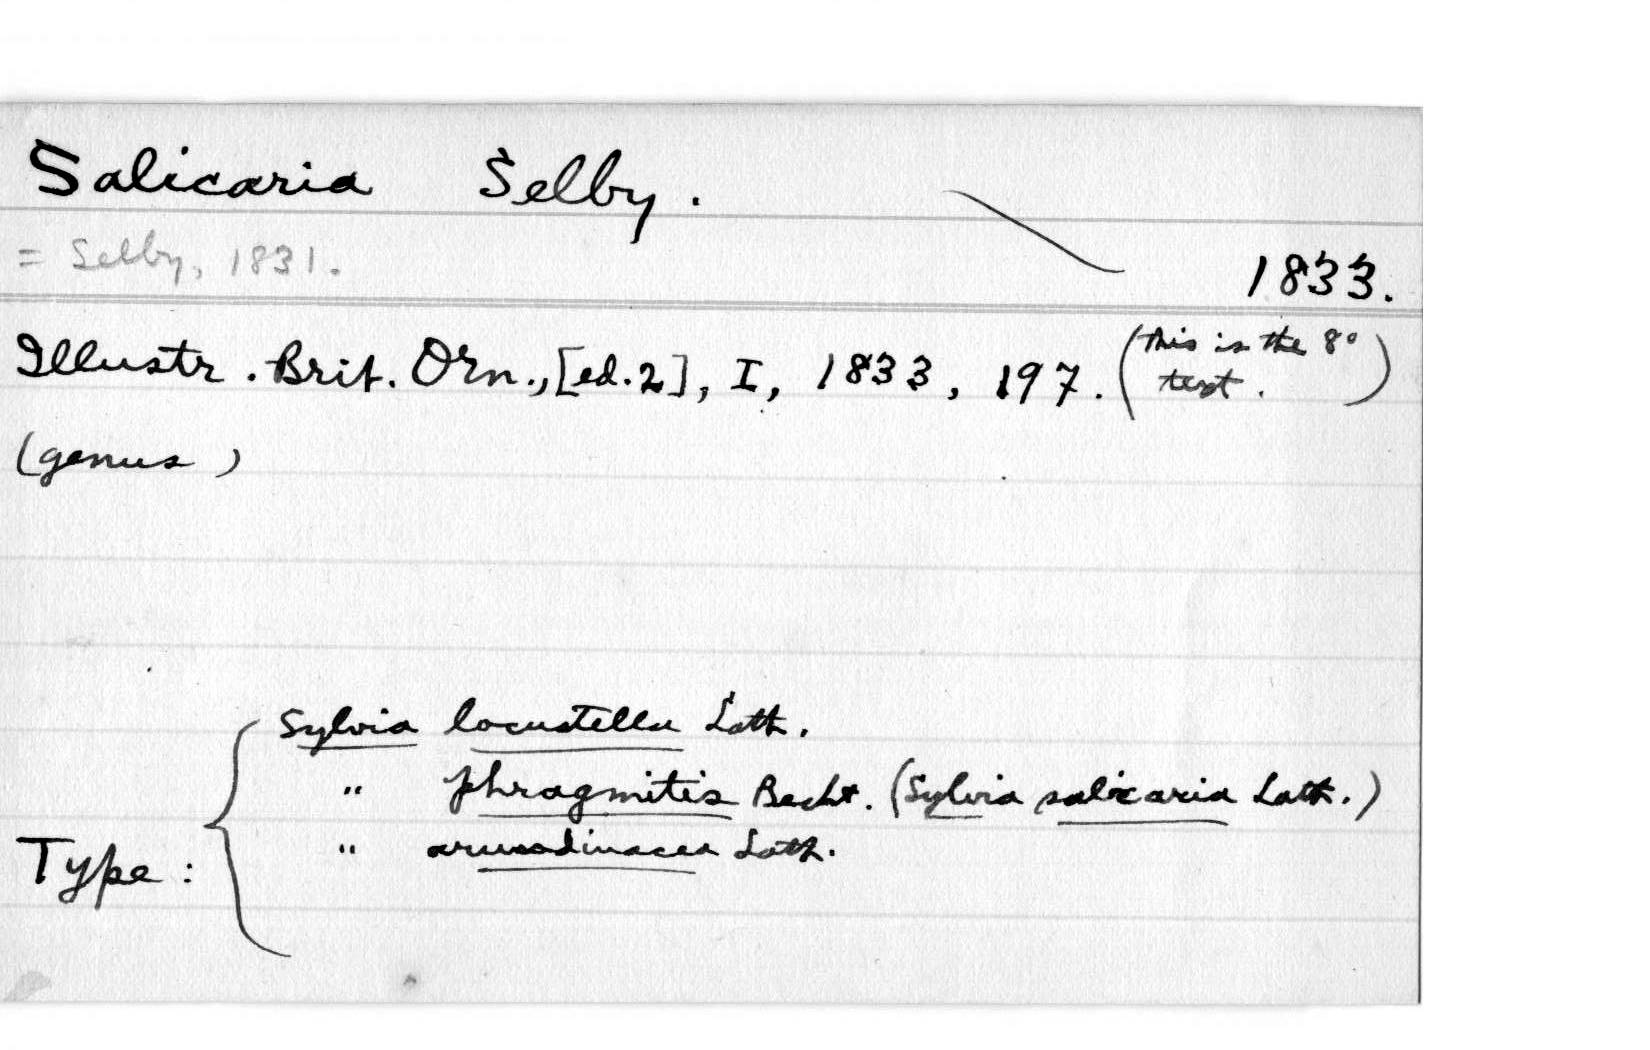 Salicaria Selby.
= Selby, 1831.
1833.
Illustr. Brit. Orn., [ed. 2], I, 1833, 197. (this is the 8° text.)
(genus)
Type: { Sylvia locustella Lath.
" phragmitis Bechst. (Sylvia salicaria Lath.)
" arundinacea Lath.